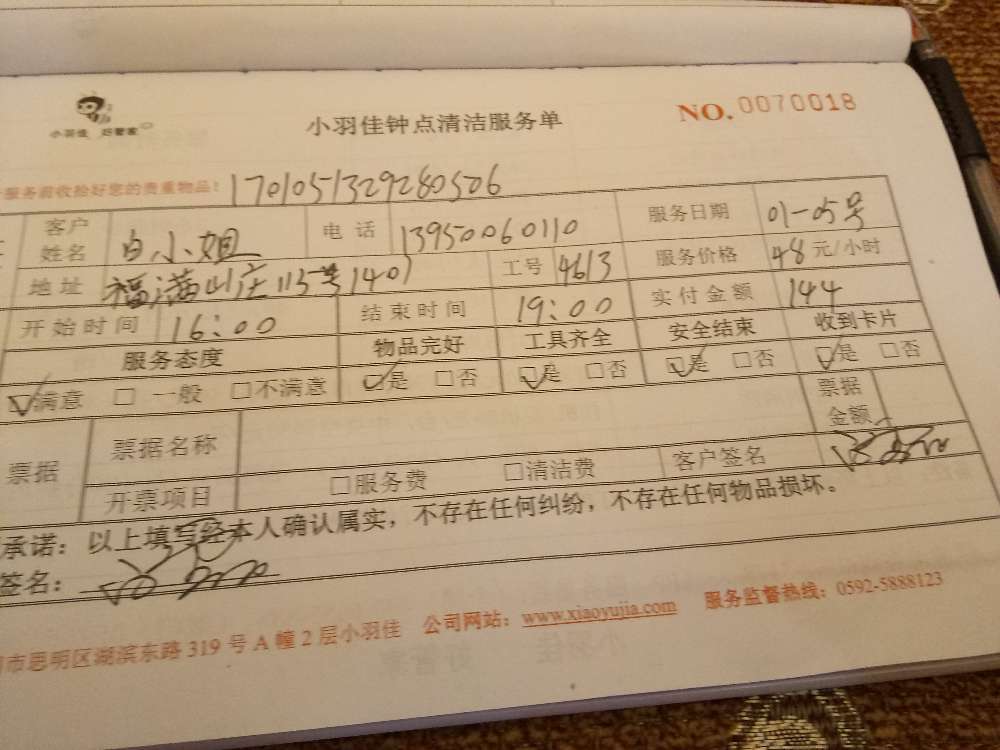 小羽佳 好管家
小羽佳钟点清洁服务单
NO. 0070018
服务前收拾好您的贵重物品! 1701051329280506
客户姓名 白小姐 电话 13950060110 服务日期 01-05号
地址 福满山庄115号1401 工号 4613 服务价格 48元/小时
开始时间 16:00 结束时间 19:00 实付金额 144
服务态度 物品完好 工具齐全 安全结束 收到卡片
☑满意 □一般 □不满意 ☑是 □否 ☑是 □否 ☑是 □否 ☑是 □否
票据 票据名称 票据金额
开票项目 □服务费 □清洁费 客户签名
承诺：以上填写经本人确认属实，不存在任何纠纷，不存在任何物品损坏。
签名：
市思明区湖滨东路319号A幢2层小羽佳 公司网站：www.xiaoyujia.com 服务监督热线：0592-5888123